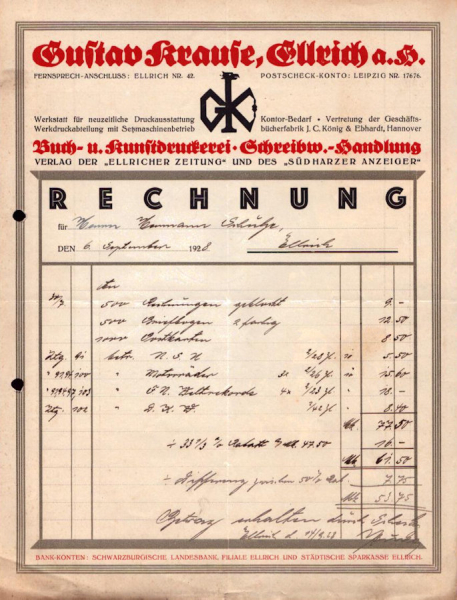 Gustav Krause, Ellrich a. H.
FERNSPRECH-ANSCHLUSS: ELLRICH NR. 42. POSTSCHECK-KONTO: LEIPZIG NR. 17676.
Werkstatt für neuzeitliche Druckausstattung
Werkdruckabteilung mit Setzmaschinenbetrieb
GK
Kontor-Bedarf • Vertretung der Geschäfts-
bücherfabrik J. C. König & Ebhardt, Hannover
Buch- u. Kunstdruckerei · Schreibw.-Handlung
VERLAG DER „ELLRICHER ZEITUNG“ UND DES „SÜDHARZER ANZEIGER“
RECHNUNG
für Herrn Hermann Schütze,
DEN 6. September 1928. Ellrich
500 Rechnungen geblockt 9.–
500 Briefbogen 2 farbig 12.50
1000 Postkarten 8.50
Ztg. betr. N. S. U. 5.50
" Motorräder 15.60
" Weltrekorde 18.–
Ztg. 102 " 8.40
77.50
÷ 33⅓ % Rabatt 47.50 16.–
61.50
÷ Differenz zwischen 50% 7.75
53.75
erhalten durch
Ellrich d.
BANK-KONTEN: SCHWARZBURGISCHE LANDESBANK, FILIALE ELLRICH UND STÄDTISCHE SPARKASSE ELLRICH.